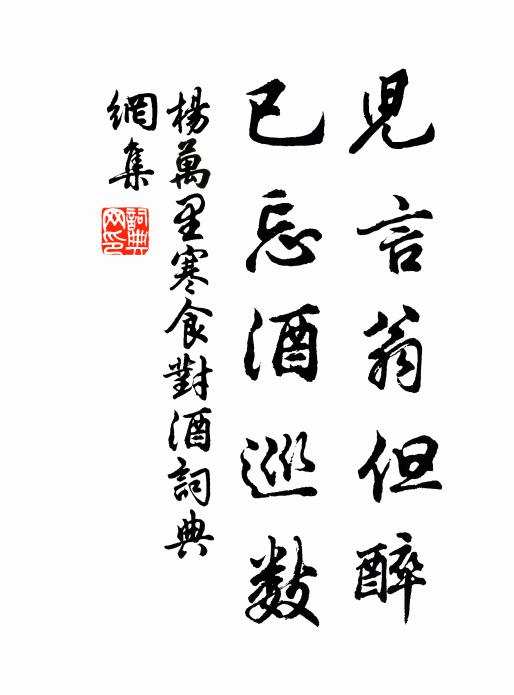 兒言翁但醉
已忘酒巡數
楊萬里寒食對酒詞典
網集
詞典網印